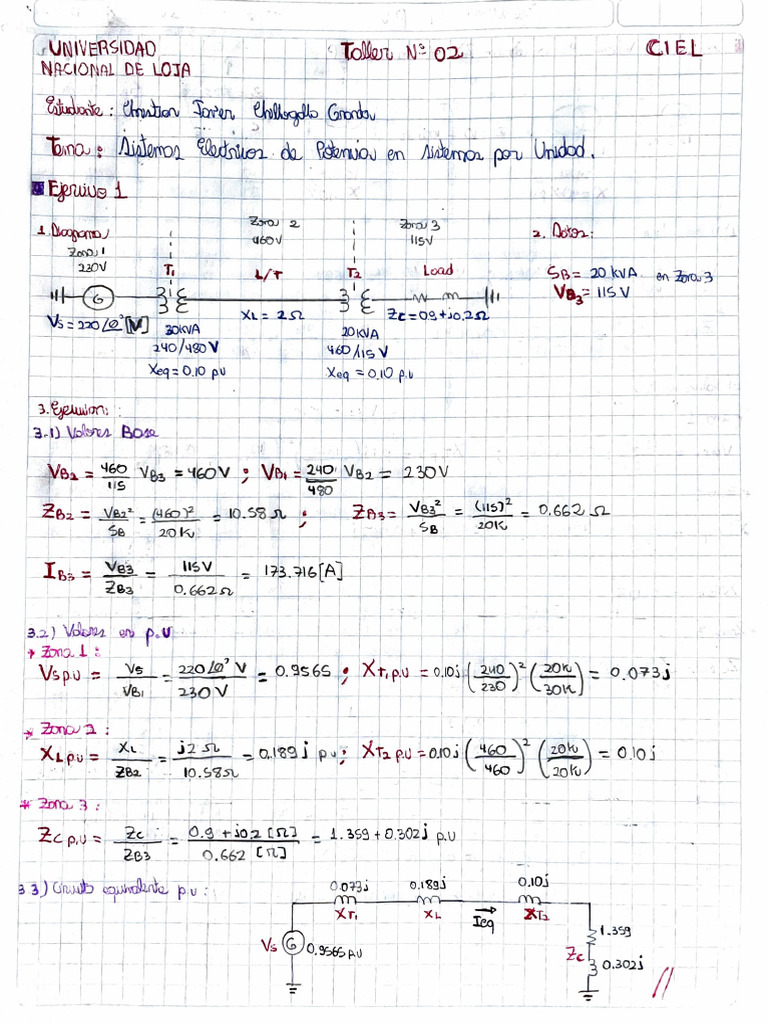 UNIVERSIDAD NACIONAL DE LOJA
Taller N° 02
CIEL
Estudiante: Javier
Tema: Sistemas Electricos de Potencia en sistemas por Unidad.
Ejercicio 1
1. Diagrama
Zona 1
230V
Zona 2
460V
Zona 3
115V
2. Datos:
SB = 20 kVA en Zona 3
VB3 = 115 V
T1
L/T
T2
Load
G
Vs = 220/0° [V]
XL = 2Ω
Zc = 0.9 + j0.2Ω
30KVA
240/480 V
Xeq = 0.10 p.u
20KVA
460/115 V
Xeq = 0.10 p.u
3. Ejecucion:
3.1) Valores Base
VB2 = 460/115 VB3 = 460V ; VB1 = 240/480 VB2 = 230V
ZB2 = VB2²/SB = (460)²/20K = 10.58 Ω ; ZB3 = VB3²/SB = (115)²/20K = 0.662 Ω
IB3 = VB3/ZB3 = 115V/0.662Ω = 173.716[A]
3.2) Valores en p.u
Zona 1:
Vs p.u = Vs/VB1 = 220/0° V/230V = 0.9565 ; XT1 p.u = 0.10j (240/230)² (20K/30K) = 0.073j
Zona 2:
XL p.u = XL/ZB2 = j2 Ω/10.58Ω = 0.189j p.u ; XT2 p.u = 0.10j (460/460)² (20K/20K) = 0.10j
* Zona 3:
Zc p.u = Zc/ZB3 = 0.9 + j0.2 [Ω]/0.662 [Ω] = 1.359 + 0.302j p.u
3.3) Circuito equivalente p.u:
0.073j
XT1
0.189j
XL
Ieq
0.10j
XT2
Vs
G
0.9565 p.u
Zc
1.359
0.302j